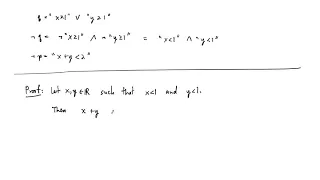 q = "x≥1" ∨ "y≥1"
¬q = ¬"x≥1" ∧ ¬"y≥1" = "x<1" ∧ "y<1"
¬p = "x+y<2"
Proof: Let x,y∈ℝ such that x<1 and y<1.
Then x+y